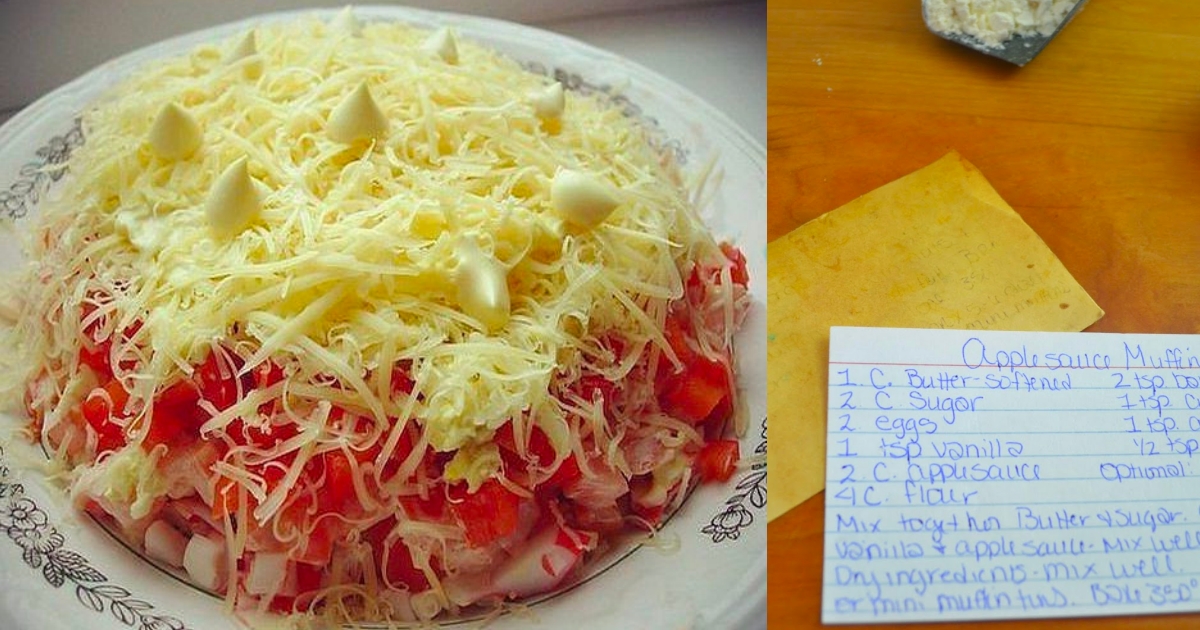 Applesauce Muffin
1 C. Butter-softened 2 tsp ba
2 C. Sugar 1 tsp. C
2 eggs 1 tsp. C
1 tsp vanilla ½ tsp
2 C. applesauce Optional:
4 C. flour
Mix together Butter & Sugar.
vanilla & applesauce. Mix well
Dry ingredients. Mix well.
er mini muffin tins. Bake 350°